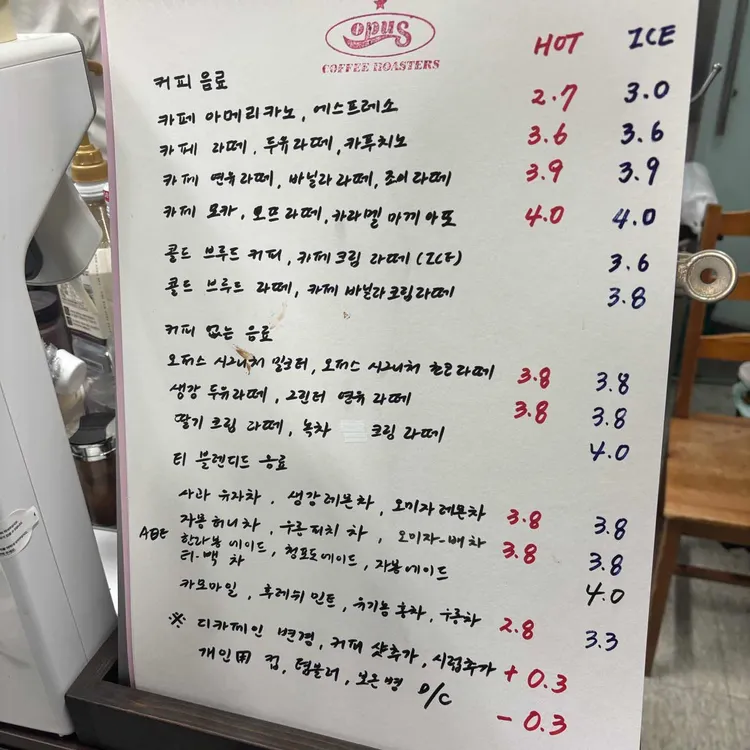 opus
COFFEE ROASTERS
HOT ICE
커피 음료
카페 아메리카노, 에스프레소 2.7 3.0
카페 라떼, 두유라떼, 카푸치노 3.6 3.6
카페 연유라떼, 바닐라라떼, 조이라떼 3.9 3.9
카페 모카, 오프라떼, 카라멜 마끼아또 4.0 4.0
콜드 브루드 커피, 카페크림 라떼 (ICE) 3.6
콜드 브루드 라떼, 카페 바닐라크림라떼 3.8
커피 없는 음료
오퍼스 시그니처 밀크티, 오퍼스 시그니처 초코라떼 3.8 3.8
생강 두유라떼, 그린티 연유 라떼 3.8 3.8
딸기 크림 라떼, 녹차 크림 라떼 4.0
티 블렌디드 음료
사과 유자차, 생강레몬차, 오미자레몬차 3.8 3.8
자몽허니차, 우롱피치 차, 오미자-배차 3.8 3.8
ADE 한라봉에이드, 청포도에이드, 자몽에이드 4.0
티-백 차
카모마일, 후레쉬 민트, 유기농 홍차, 우롱차 2.8 3.3
※ 디카페인 변경, 커피 샷추가, 시럽추가 + 0.3
개인用 컵, 텀블러, 보온병 D/C - 0.3